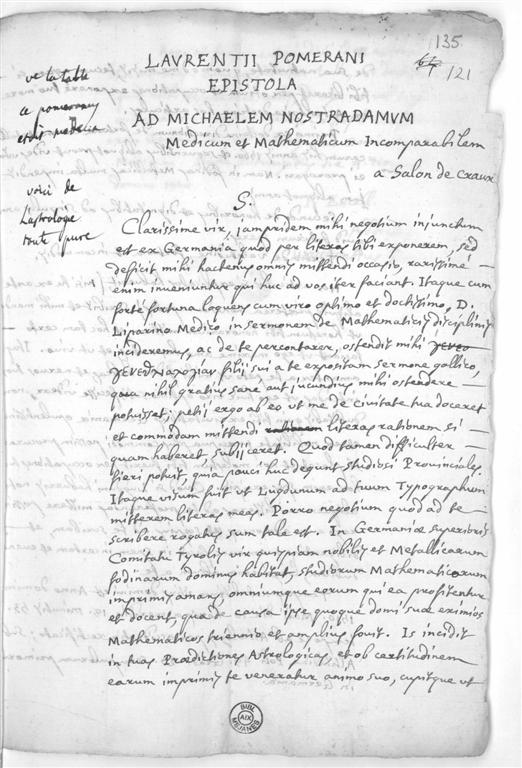 135
64 121
LAVRENTII POMERANI
EPISTOLA
AD MICHAELEM NOSTRADAMVM
Medicum et Mathematicum Incomparabilem
a Salon de Craux
ve la table
ce pomerany
estoit medecin
voici de
L'astrologie
toute pure
S.
Clarissime vir, iampridem mihi negotium injunctum
est ex Germania quod per literas tibi exponerem, sed
deficit mihi hactenus omnis mittendi occasio, rarissimè
enim inveniuntur qui huc ad vos iter faciant. Itaque cum
forte fortuna loquens cum viro optimo et doctissimo, D.
Liparino Medico, in sermonem de Mathematicis disciplinis
incideremus, ac de te percontarer, ostendit mihi γενεθ
γενεθλιαλογίας filii sui a te expositam sermone gallico,
quia nihil gratius sane aut jucundius mihi ostendere
potuisset, petij ergo ab eo ut me de civitate tua doceret
et commodam mittendi literas rationem si
quam haberet, subijceret. Quod tamen difficulter
fieri potuit, quia pauci huc degunt studiosi Provinciales.
Itaque visum fuit ut Lugdunum ad tuum Typographum
mitterem literas meas. Porro negotium quod ad te
scribere rogatus sum tale est. In Germaniæ superioris
Comitatu Tyrolis vir quispiam nobilis et Metallicarum
fodinarum dominus habitat, studiorum Mathematicorum
imprimis amans, omniumque eorum qui ea profitentur
et docent, qua de causa ipse quoque domi suæ eximios
Mathematicos triennio et amplius fovit. Is incidit
in tuas Prædictiones Astrologicas, et ob certitudinem
earum imprimis te veneratur animo suo, cupitque ut
BIBL
AIX
MEJANES